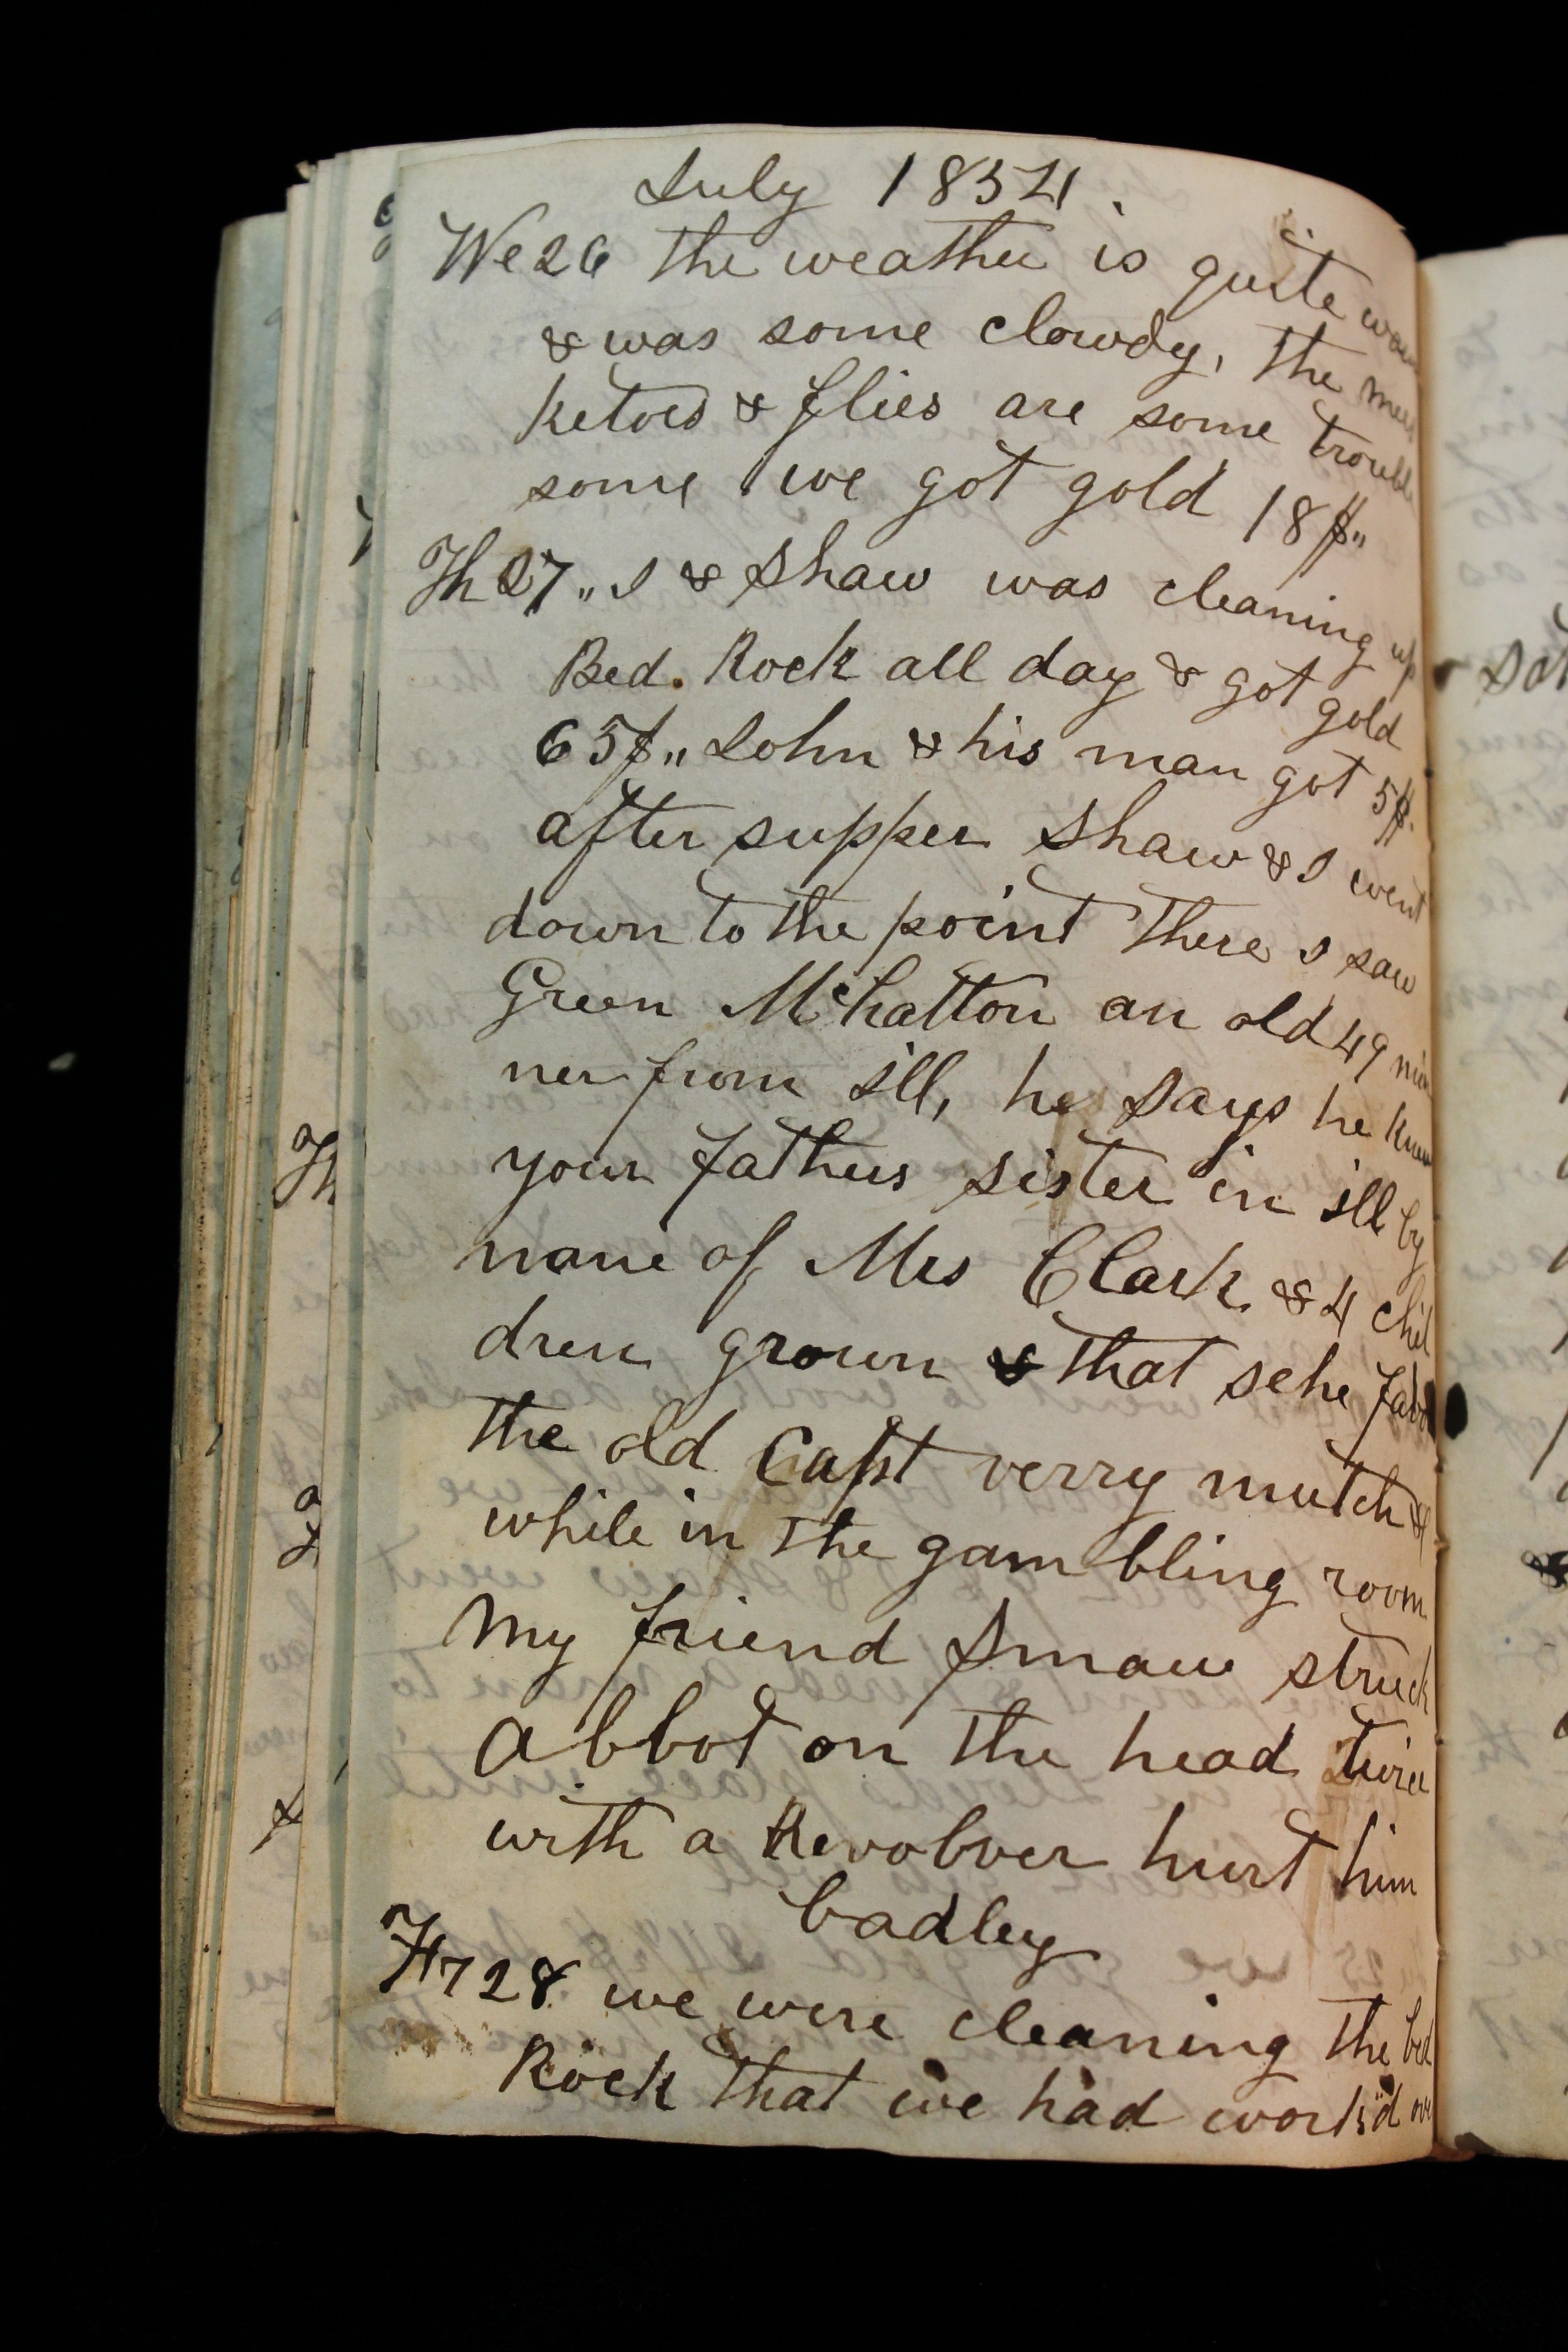 July 1854.
We 26 the weather is quite
& was some clowdy, the
ketoes & flies are some trouble
some we got gold 18$"
Th 27" I & Shaw was cleaning up
Bed. Rock all day & got gold
65$" John & his man got 5$.
after supper Shaw & I went
down to the point there I saw
Green McHatton an old 49 mi
ner from ill, he says he knew
your fathers sister in ill by
name of Mrs Clark & 4 chil
dren grown & that sehe
the old Capt verry mutch &
while in the gam bling room
my friend Smaw struck
Abbot on the head twice
with a Revolver hurt him
badley
28 we were cleaning the bed
Rock that we had work'd